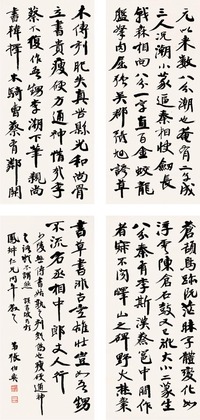 蒼頡鳥跡既茫昧字體變化如
浮雲陳倉石鼓又已訛大小二篆生
八分秦有李斯漢蔡邕中間作
者寂不聞嶧山之碑野火焚棗
木傳刻肥失真苦縣光和尚骨
立書貴瘦硬方通神惜哉李
蔡不復作吾甥李潮下筆親尚
書韓擇木騎曹蔡有鄰開
元以來數八分潮也奄有二子成
三人況潮小篆逼秦相快劍長
戟森相向八分一字直百金蛟龍
盤拏肉屈強吳郡張顛誇草
書草書非古空雄壯豈如吾甥
不流宕丞相中郎丈人行
仁兄
張伯英